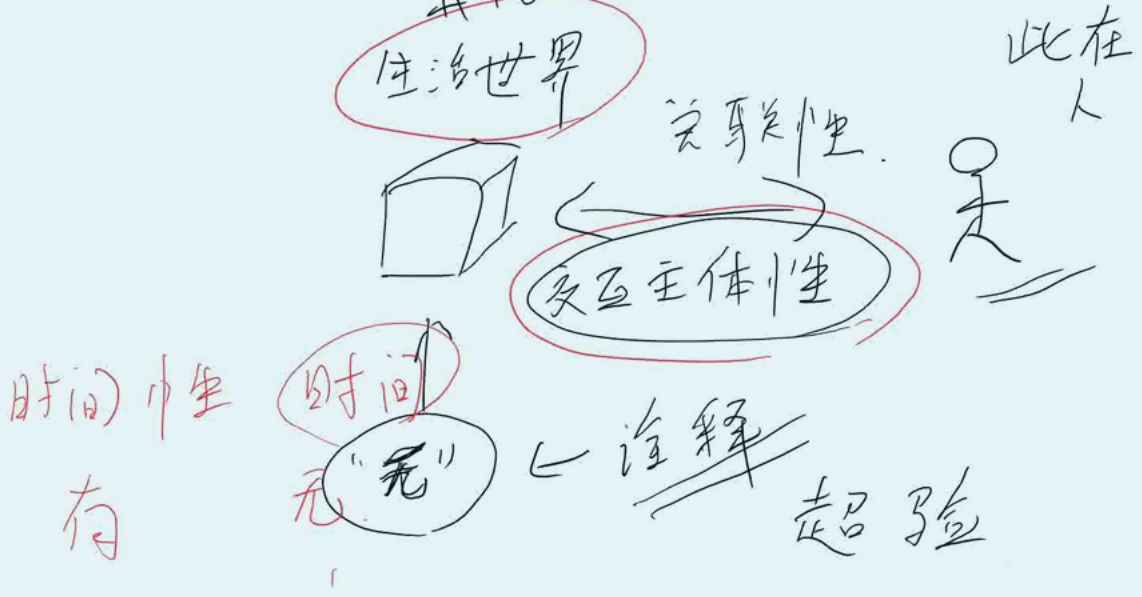 生活世界
此在
人
关联性.
交互主体性
时间性 时间
"无" ← 诠释
有 无
超验